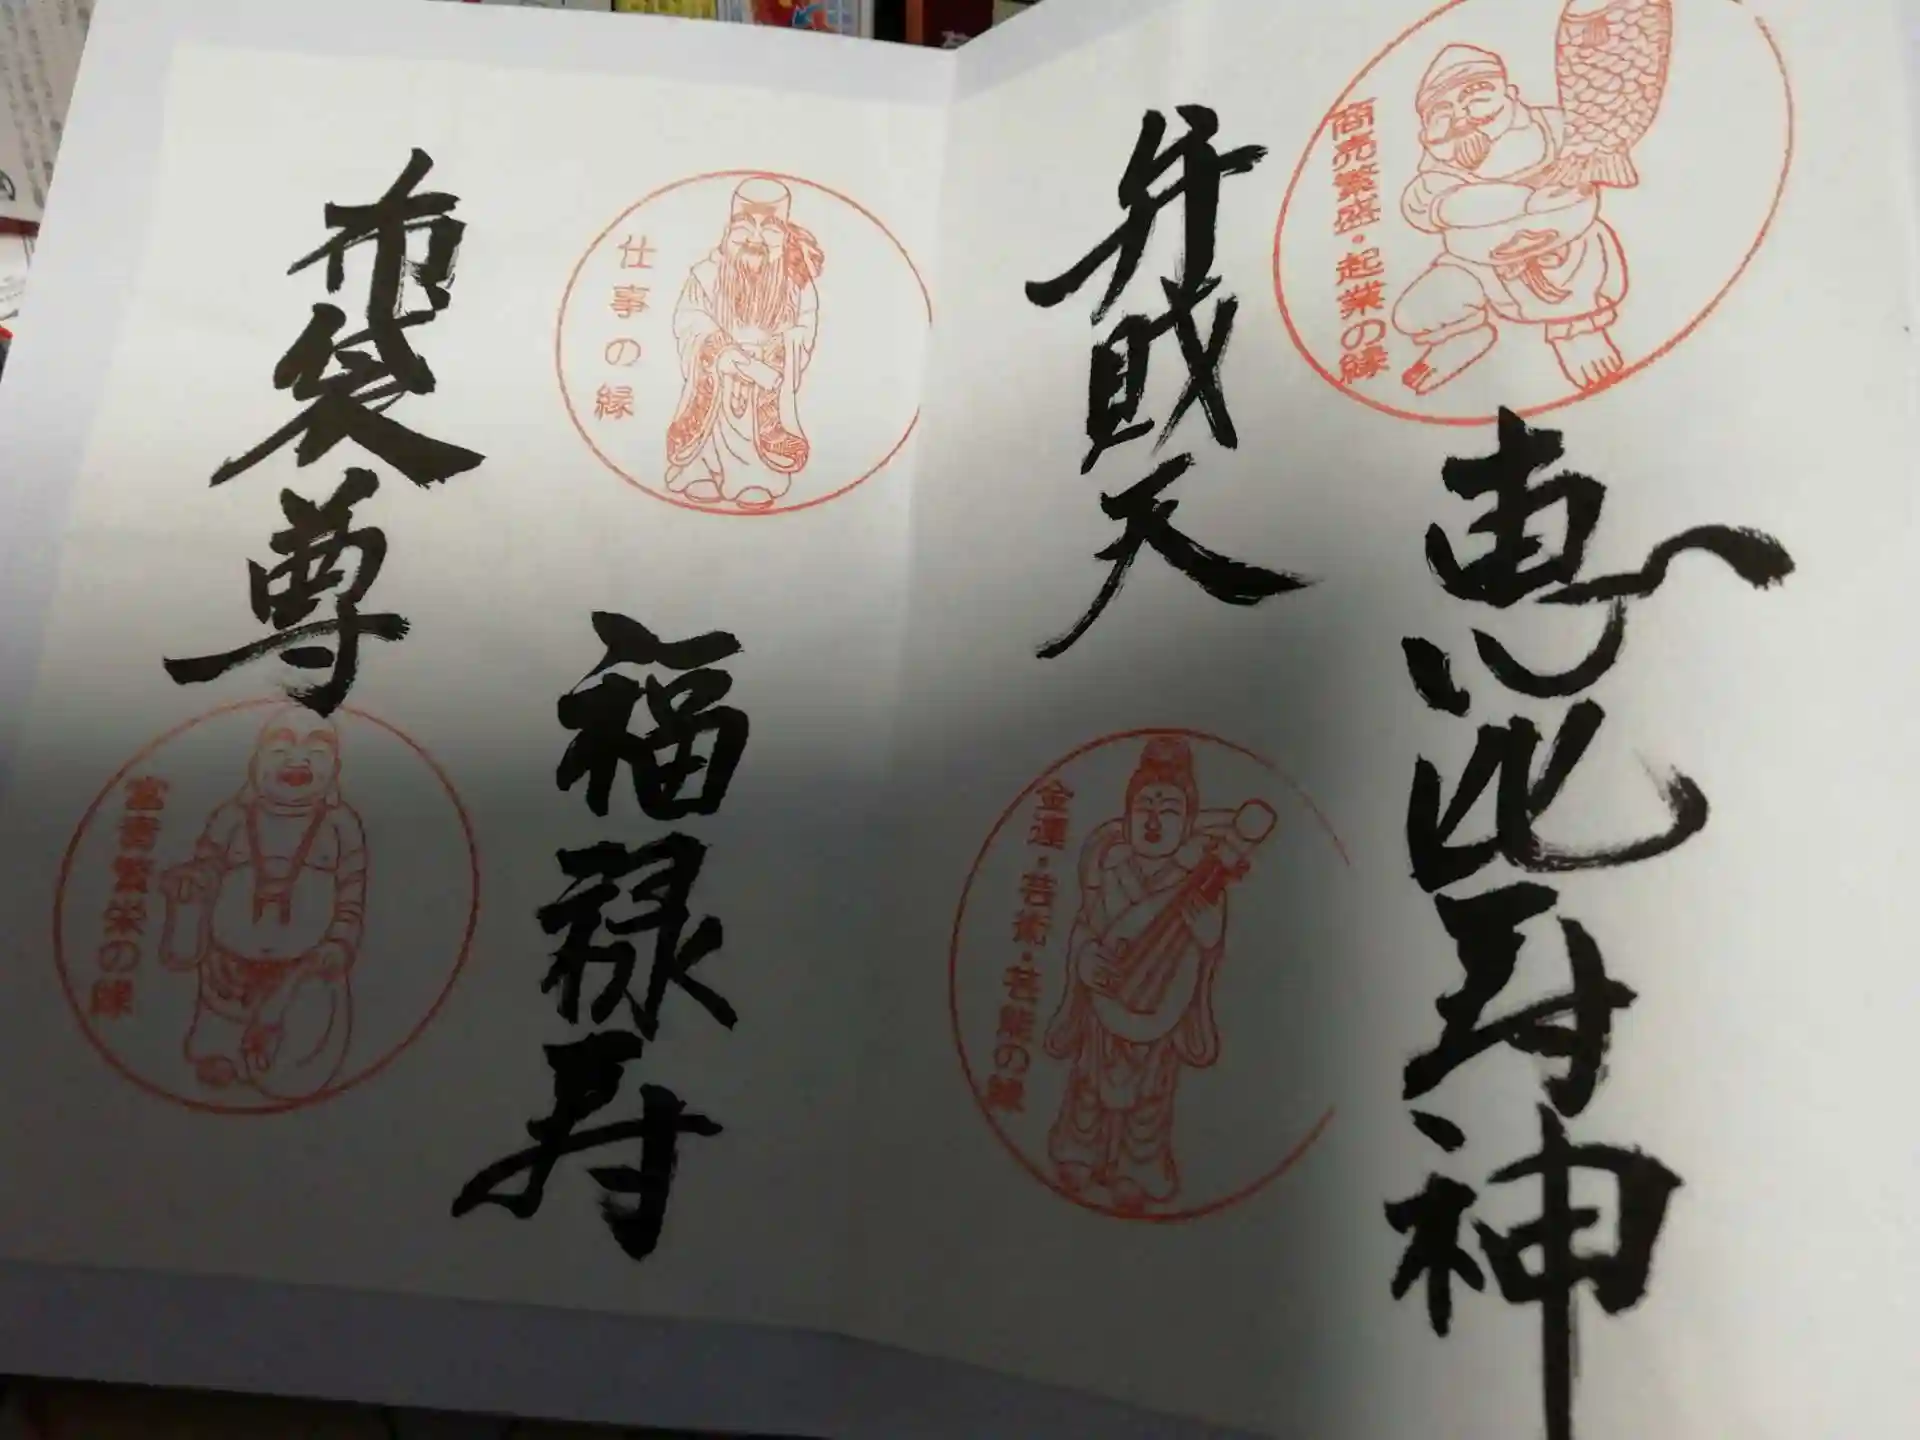 商売繁盛・起業の縁
恵比寿神
弁財天
金運・芸術・芸能の縁
仕事の縁
福禄寿
布袋尊
富貴繁栄の縁